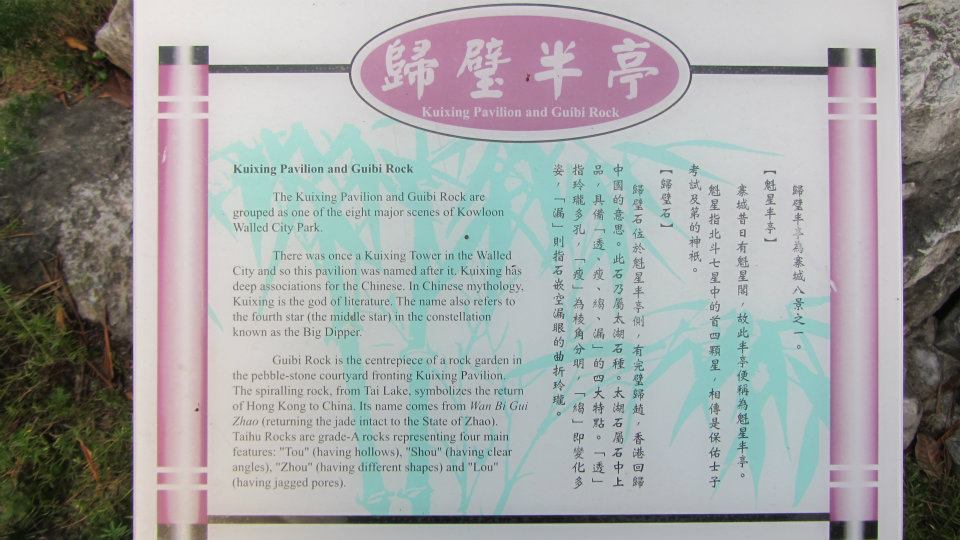 歸璧半亭
Kuixing Pavilion and Guibi Rock
Kuixing Pavilion and Guibi Rock
The Kuixing Pavilion and Guibi Rock are
grouped as one of the eight major scenes of Kowloon
Walled City Park.
There was once a Kuixing Tower in the Walled
City and so this pavilion was named after it. Kuixing has
deep associations for the Chinese. In Chinese mythology,
Kuixing is the god of literature. The name also refers to
the fourth star (the middle star) in the constellation
known as the Big Dipper.
Guibi Rock is the centrepiece of a rock garden in
the pebble-stone courtyard fronting Kuixing Pavilion.
The spiralling rock, from Tai Lake, symbolizes the return
of Hong Kong to China. Its name comes from Wan Bi Gui
Zhao (returning the jade intact to the State of Zhao).
Taihu Rocks are grade-A rocks representing four main
features: "Tou" (having hollows), "Shou" (having clear
angles), "Zhou" (having different shapes) and "Lou"
(having jagged pores).
歸璧半亭為寨城八景之一。
【魁星半亭】
寨城昔日有魁星閣，故此半亭便稱為魁星半亭。
魁星指北斗七星中的首四顆星，相傳是保佑士子
考試及第的神祇。
【歸璧石】
歸璧石位於魁星半亭側，有完璧歸趙，香港回歸
中國的意思。此石乃屬太湖石種。太湖石屬石中上
品，具備「透、瘦、縐、漏」的四大特點。「透」
指玲瓏多孔，「瘦」為稜角分明，「縐」即變化多
姿，「漏」則指石嵌空漏眼的曲折玲瓏。